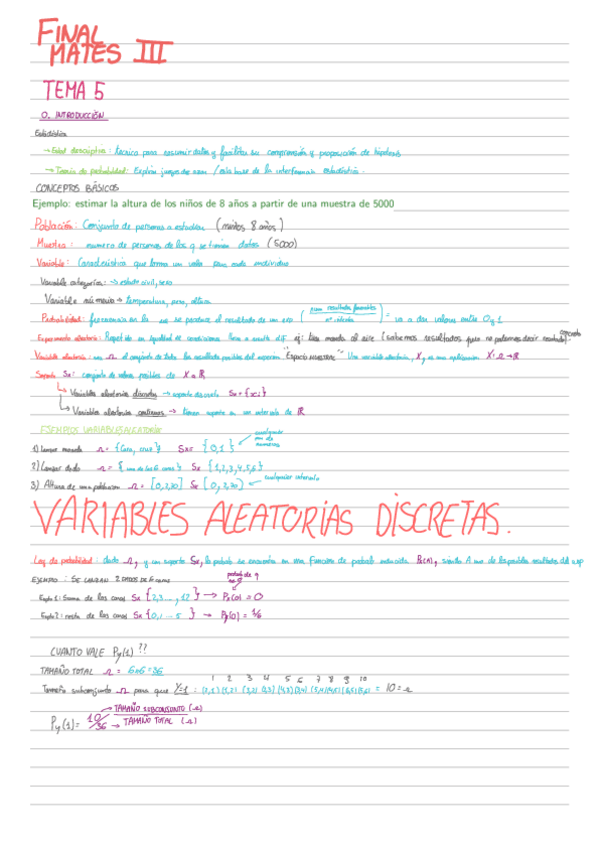 FINAL
MATES III
TEMA 5
0. INTRODUCCIÓN
Estadística
→ Estad descriptiva: técnica para resumir datos y facilitar su comprensión y proposición de hipótesis
→ Teoría de probabilidad: Explica juegos de azar / es la base de la inferencia estadística.
CONCEPTOS BÁSICOS
Ejemplo: estimar la altura de los niños de 8 años a partir de una muestra de 5000
Población: Conjunto de personas a estudiar (niños 8 años)
Muestra: numero de personas de las q se tienen datos (5000)
Variable: Característica que toma un valor para cada individuo
Variable categórica: → estado civil, sexo
Variable numérica → temperatura, peso, altura
Probabilidad: frecuencia en la se produce el resultado de un exp = va a dar valores entre 0 y 1
Experimento aleatorio: en igualdad de condiciones ej: tirar moneda al aire (sabemos resultados pero no podemos decir resultado concreto).
Variable aleatoria: Ω el conjunto de todos los resultados posibles del "ESPACIO MUESTRAL" Una variable aleatoria, X, es una aplicación X: Ω → ℝ
Soporte Sx: conjunto de valores posibles de X a ℝ
↳ Variables aleatorias discretas → soporte discreto Sx = {xi}
↳ Variables aleatorias continuas → tienen soporte en un intervalo de ℝ
EJEMPLOS VARIABLES ALEATORIAS
1) Lanzar moneda Ω = {Cara, cruz} Sx = {0,1}
2) Lanzar dado Ω = { } Sx {1,2,3,4,5,6}
3) Altura de una población Ω = [0,2,30] Sx [0,2,30) cualquier intervalo
VARIABLES ALEATORIAS DISCRETAS.
Ley de probabilidad: dado Ω, y un soporte Sx, la probab se encuentra en una función de probab inducida Px(A), siendo A uno de los posibles resultados del exp
EJEMPLO: SE LANZAN 2 DADOS DE 6 caras
Ejemplo 1: Suma de las caras Sx {2,3..., 12} → Px(0) = 0
Ejemplo 2: resta de las caras Sx {0,1...5} → Py(0) = 1/6
CUANTO VALE Py(1)??
TAMAÑO TOTAL Ω = 6x6 = 36
1 2 3 4 5 6 7 8 9 10
Tamaño subconjunto Ω para que Y=1: (2,1) (1,2) (3,2) (2,3) (4,3) (3,4) (5,4) (4,5) (6,5) (5,6) = 10 = Ω
Py(1) = 10/36 → TAMAÑO SUBCONJUNTO (Ω) → TAMAÑO TOTAL (Ω)